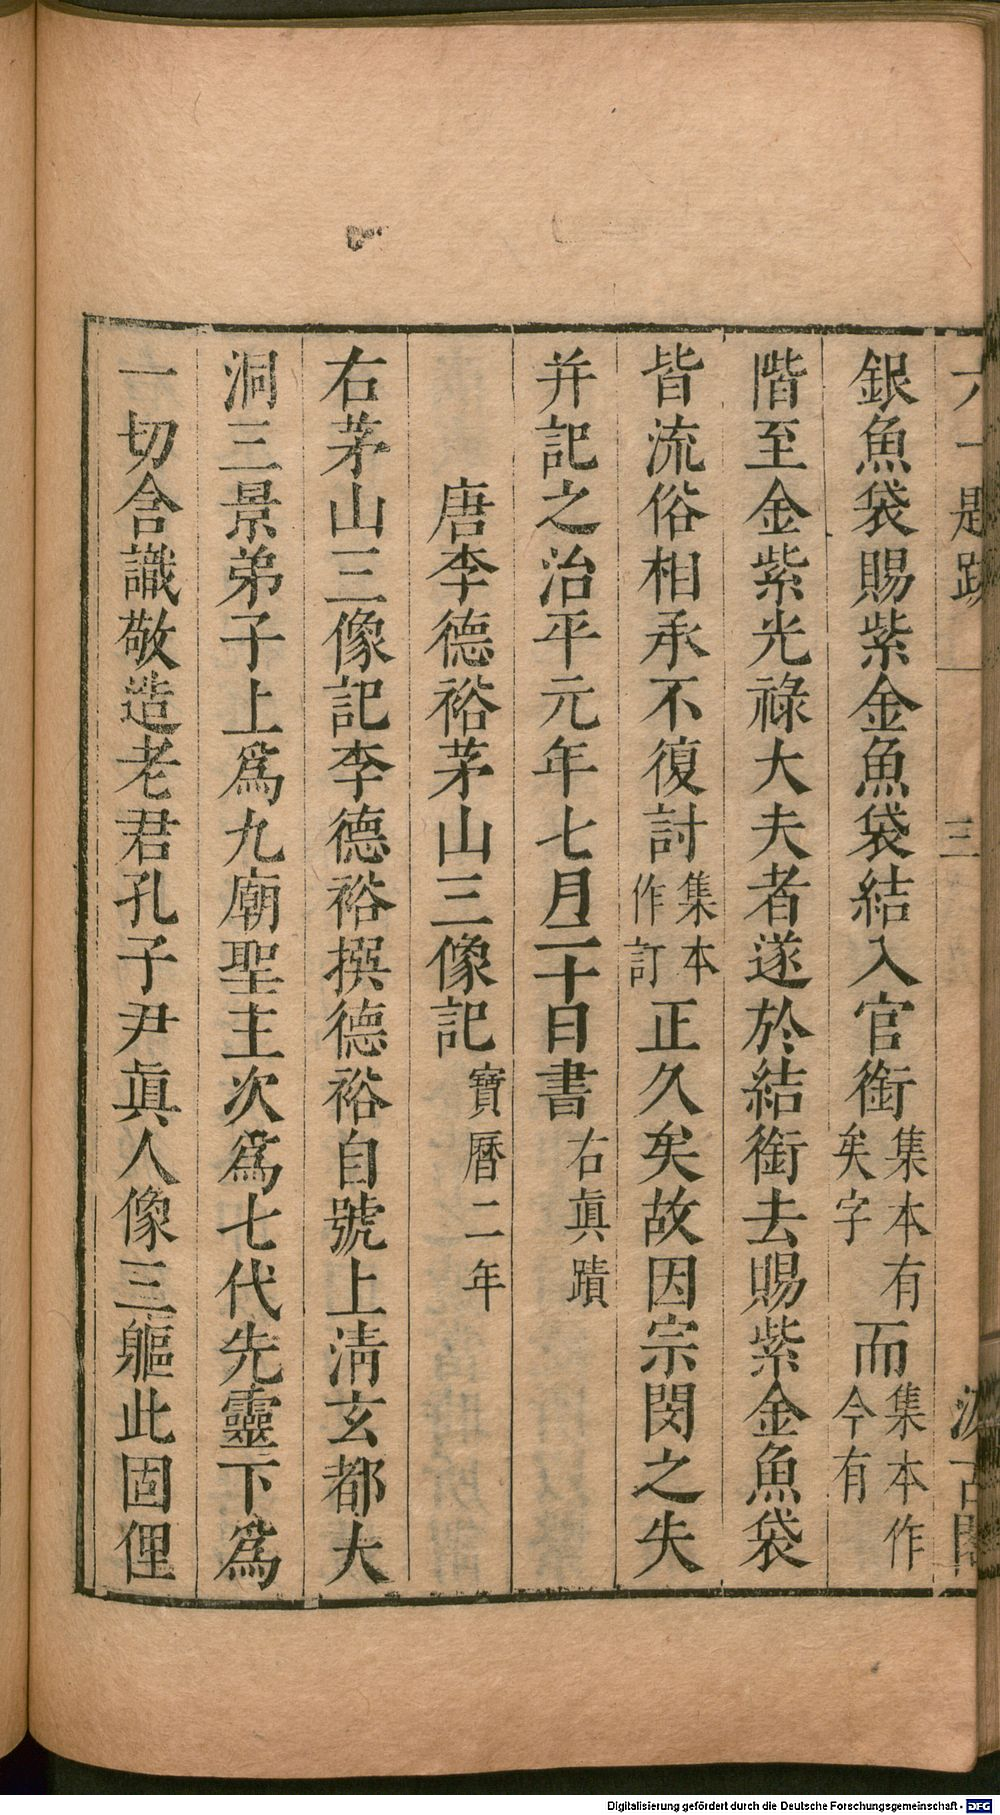 銀魚袋賜紫金魚袋結入官銜集本有矣字而集本作今有
階至金紫光祿大夫者遂於結銜去賜紫金魚袋
皆流俗相承不復討集本作訂正久矣故因宗閔之失
并記之治平元年七月二十日書右眞蹟
唐李德裕茅山三像記寶曆二年
右茅山三像記李德裕撰德裕自號上淸玄都大
洞三景弟子上爲九廟聖主次爲七代先靈下爲
一切含識敬造老君孔子尹眞人像三軀此固俚
三
Digitalisierung gefördert durch die Deutsche Forschungsgemeinschaft - DFG